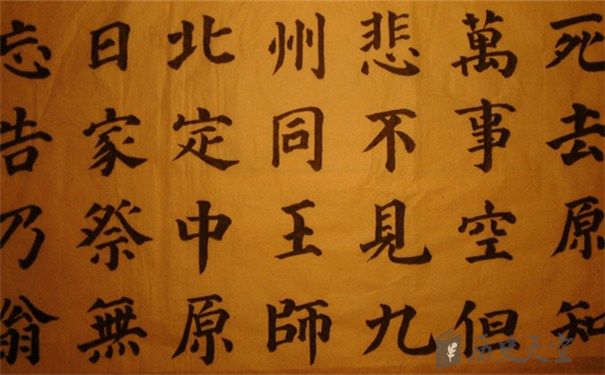 死去原知
萬事空但
悲不見九
州同王師
北定中原
日家祭無
忘告乃翁
历史天空